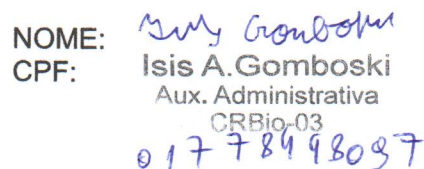 NOME:
CPF:
Isis A.Gomboski
Aux. Administrativa
CRBio-03
01778498097